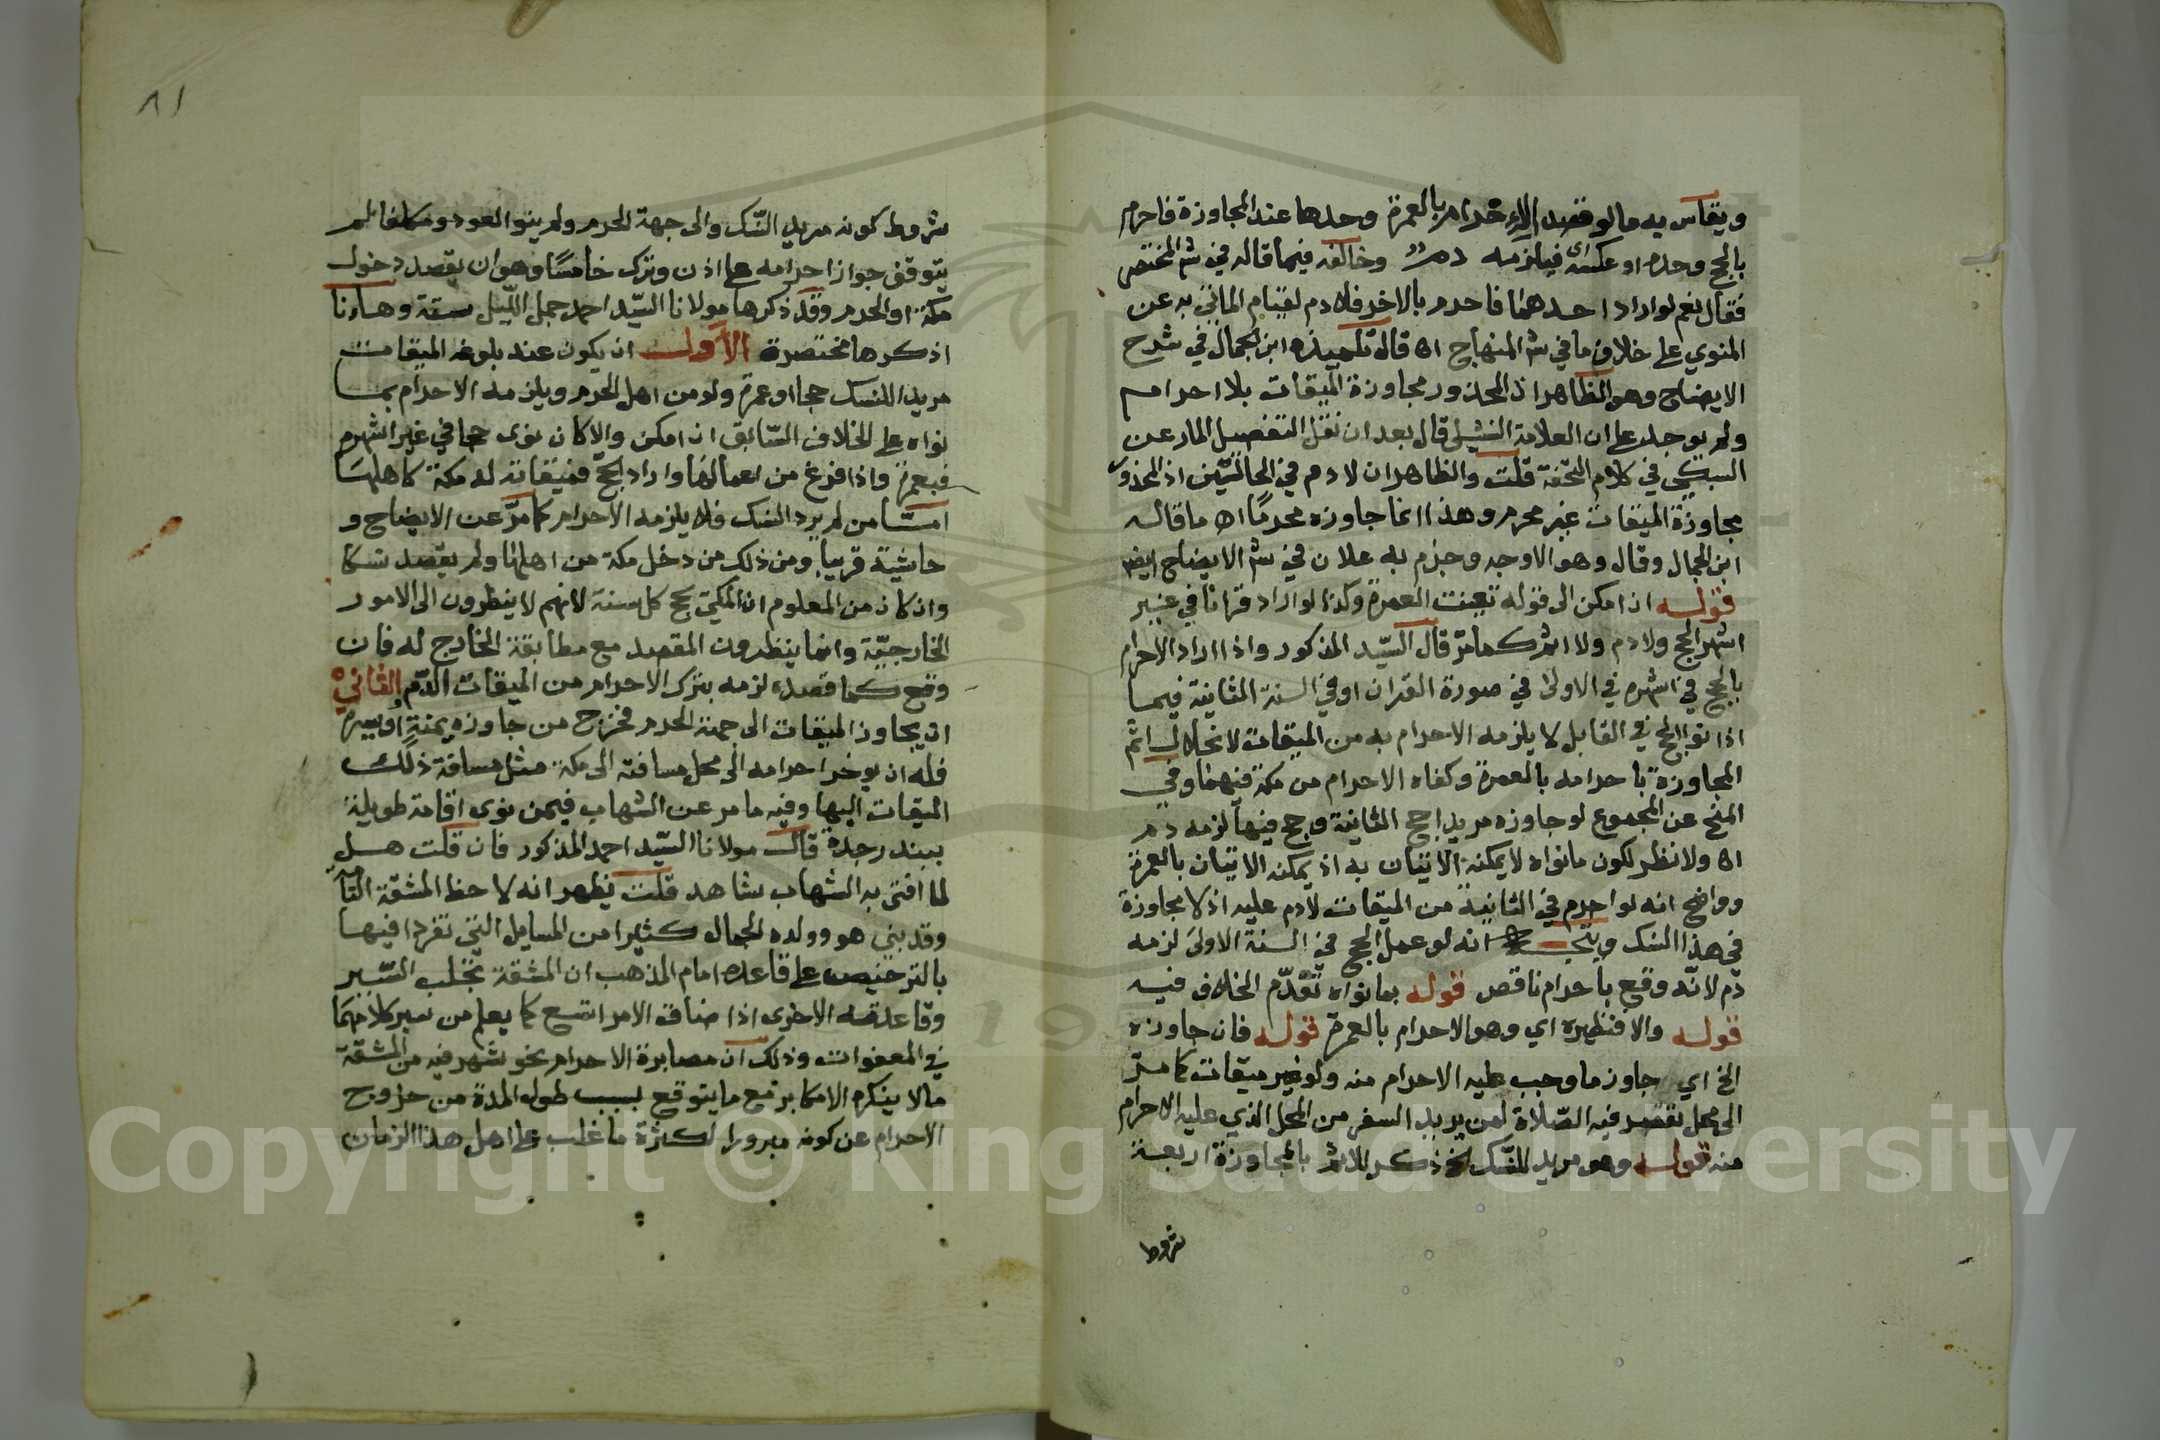 ويقاس به ما لو قصد الاحرام بالعمرة وحدها عند المجاوزة فاحرم
بالحج وحده او عكسه اي فيلزمه دم وخالفه فيما قاله في شم المختصر
فقال نعم لو اراد احدهما فاحرم بالاخر فلا دم لقيام الماتي به عن
المنوي على خلاف ما في شم المنهاج اه قال تلميذه ابن الجمال في شرح
الايضاح وهو الظاهر اذ المحذور مجاوزة الميقات بلا احرام
ولم يوجد على ان العلامة النشيلي قال بعد ان نقل التفصيل المار عن
السبكي في كلام التحفة قلت والظاهر ان لا دم في الحالتين اذ المحذور
مجاوزة الميقات غير محرم وهذا انما جاوزه محرمًا اه ما قاله
ابن الجمال وقال وهو الاوجه وجزم به علان في شم الايضاح ايضا
قوله ان امكن الى قوله تعينت العمرة وكذا لو اراد قرانا في غير
اشهر الحج ولا دم ولا اثم كما مرّ قال السيّد المذكور واذا اراد الاحرام
بالحج في اشهره في الاولى في صورة القران او في السنة الثانية فيما
اذا نوا الحج في القابل لا يلزمه الاحرام به من الميقات لانحلال اثم
المجاوزة باحرامه بالعمرة وكفاه الاحرام من مكة فيهما وفي
المنح عن المجموع لو جاوزه مريدا حج الثانية وحج فيها لزمه دم
اه ولا نظر لكون ما نواه لا يمكنه الاتيان به اذ يمكنه الاتيان بالعمرة
وواضح انه لو احرم في الثانية من الميقات لا دم عليه اذ لا مجاوزة
في هذا النسك ويتجه انه لو عمل الحج في السنة الاولى لزمه
دم لانّه وقع باحرام ناقص قوله بما نواه تقدّم الخلاف فيه
قوله والا فنظيره اي وهو الاحرام بالعمرة قوله فان جاوزه
الخ اي جاوز ما وجب عليه الاحرام منه ولو غير ميقات كما مرّ
الى محل تقصر فيه الصّلاة لمن يريد السفر من المحل الذي عليه الاحرام
منه قوله وهو مريد للنسك الخ ذكر للاثم بالمجاوزة اربعة
شروط
٨١
شروط كونه مريد النّسك والى جهة الحرم ولم ينو العود ومكلفا لم
يتوقف جواز احرامه على اذن وترك خامسًا وهو ان يقصد دخول
مكة او الحرم وقد ذكرها مولانا السيّد احمد جمل اللّيل ستة وها انا
اذكرها مختصرة الأول ان يكون عند بلوغه الميقات
مريدا للنسك حجا او عمرة ولو من اهل الحرم ويلزمه الاحرام بما
نواه على الخلاف السّابق ان امكن والا كان نوى حجا في غير اشهره
فبعمرة واذا فرغ من اعمالها واراد الحج فميقاته له مكة كاهلها
امّا من لم يرد النسك فلا يلزمه الاحرام كما مرّ عن الايضاح و
حاشيته قريبا ومن ذلك من دخل مكة من اهلها ولم يقصد نسكا
وان كان من المعلوم ان المكي يحج كل سنة لانهم لا ينظرون الى الامور
الخارجيّة وانما ينظرون المقصد مع مطابقة الخارج له فان
وقع كما قصده لزمه بترك الاحرام من الميقات الدّم الثاني
ان يجاوز الميقات الى جهة الحرم فخرج من جاوزه يمنة او يسرة
فله ان يوخر احرامه الى محل مسافته الى مكة مثل مسافة ذلك
الميقات اليها وفيه ما مر عن الشهاب فيمن نوى اقامة طويلة
ببندر جدة قال مولانا السّيد احمد المذكور فان قلت هل
لما افتى به الشهاب شاهد قلت يظهر انه لاحظ المشقة التامة
وقد بنى هو وولده الجمال كثيرا من المسايل التي تفردا فيها
بالترخيص على قاعدة امام المذهب ان المشقة تجلب التّيسير
وقاعدته الاخرى اذا ضاق الامر اتسع كما يعلم من سبر كلامهما
في المعفوات وذلك ان مصابرة الاحرام نحو شهر فيه من المشقّة
ما لا ينكره الا مكابر مع ما يتوقع بسبب طول المدة من خروج
الاحرام عن كونه مبرورا لكثرة ما غلب على اهل هذا الزمان
Copyright © King Saud University